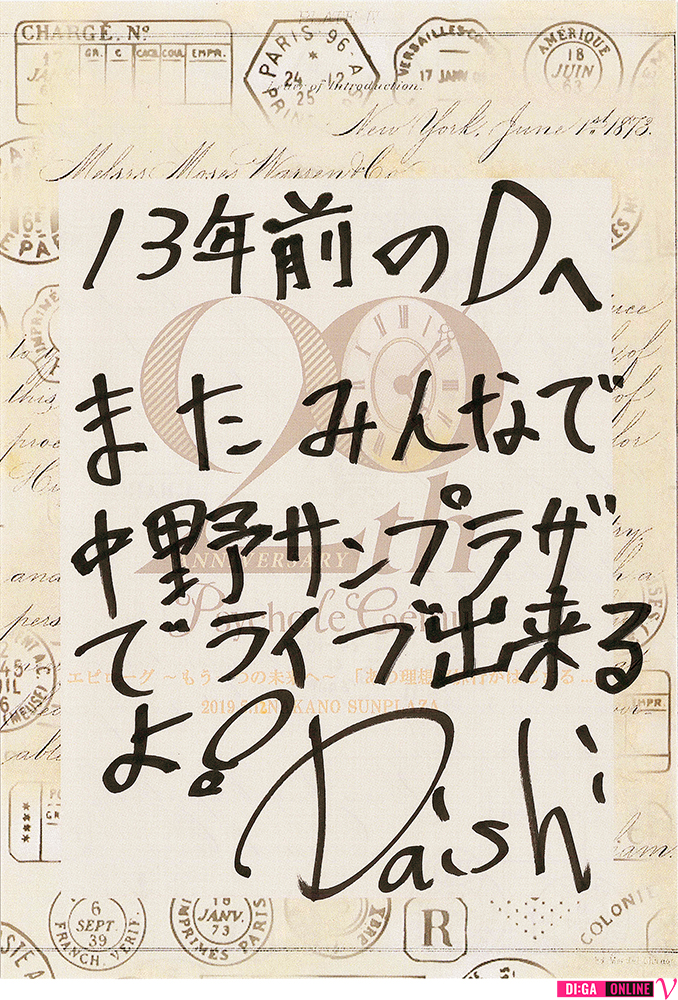 CHARGE. Nº
GR.
C
EMPR.
PARIS 96
24 12
25
VERSAILLES
17 JANV
AMÉRIQUE
18
JUIN
63
Letter of Introduction.
New York, June 1st 1873.
Messrs Moses Warren & Co
13年前のDへ
また みんなで
中野サンプラザ
でライブ出来る
よ!
Daishi
20th
ANNIVERSARY
Psycho le Cému
エピローグ ~もう一つの未来へ~
2019 NAKANO SUNPLAZA
6
SEPT.
39
FRANCH. VERIF.
15
JANV.
73
IMPRIMÉS PARIS
R
COLONIE
DI:GA ONLINE V